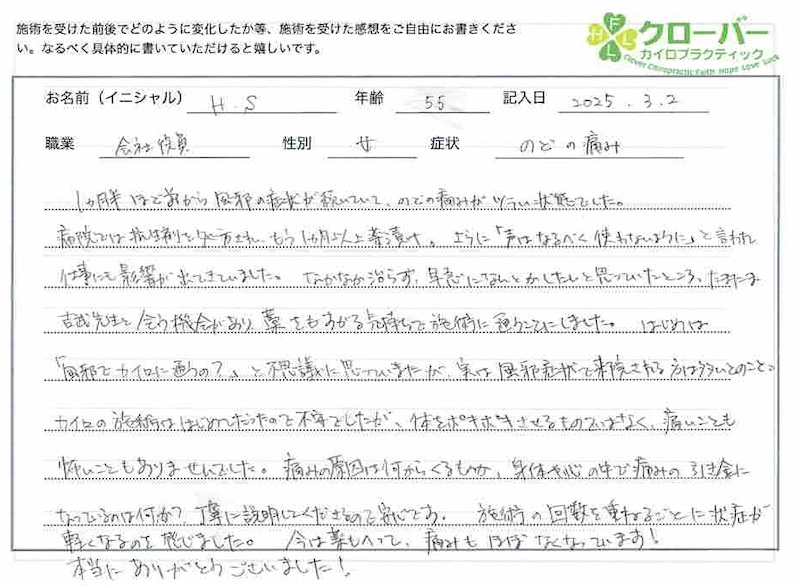 施術を受けた前後でどのように変化したか等、施術を受けた感想をご自由にお書きください。なるべく具体的に書いていただけると嬉しいです。
FHLL
クローバー
カイロプラクティック
Clover Chiropractic Faith Hope Love Luck
お名前（イニシャル） H.S 年齢 55 記入日 2025.3.2
職業 会社役員 性別 女 症状 のどの痛み
1ヵ月半ほど前から風邪の症状が続いていて、のどの痛みがツラい状態でした。
病院では抗生剤を処方され、もう1ヵ月以上薬漬け。さらに「声はなるべく使わないように」と言われ
仕事にも影響が出てきていました。なかなか治らず、早急になんとかしたいと思っていたところ、たまたま
吉武先生と会う機会があり、藁をもすがる気持ちで施術に通うことにしました。はじめは
「風邪でカイロに通うの？」と不思議に思っていましたが、実は風邪症状で来院される方は多いとのこと。
カイロの施術ははじめてだったので不安でしたが、体をボキボキさせるものではなく、痛いことも
怖いこともありませんでした。痛みの原因は何からくるものか、身体や心の中で痛みの引き金に
なっているのは何か？丁寧に説明してくださるので安心です。施術の回数を重ねるごとに状症が
軽くなるのを感じました。今は薬もへって、痛みもほぼなくなっています！
本当にありがとうございました！